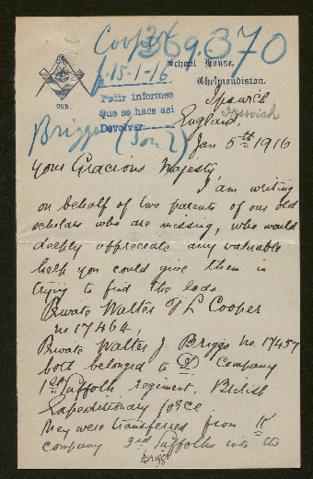 Cooper
369.370
School House,
Chelmondiston.
f. 15-1-16
Pedir informes
Que se hace asi
Devolver.
Ipswich
Ipswich
England
Briggs (Son 2)
Jan 5th 1916
Your Gracious Majesty,
I am writing
on behalf of two parents of our old
scholars who are missing, who would
deeply appreciate any valuable
help you could give them in
trying to find the lads
Private Walter J L Cooper
no 17464,
Private Walter J Briggs no. 17457
both belonged to D Company
1st Suffolk Regiment, British
Expeditionary force
They were transferred from K
Company 3rd Suffolks into the
Briggs